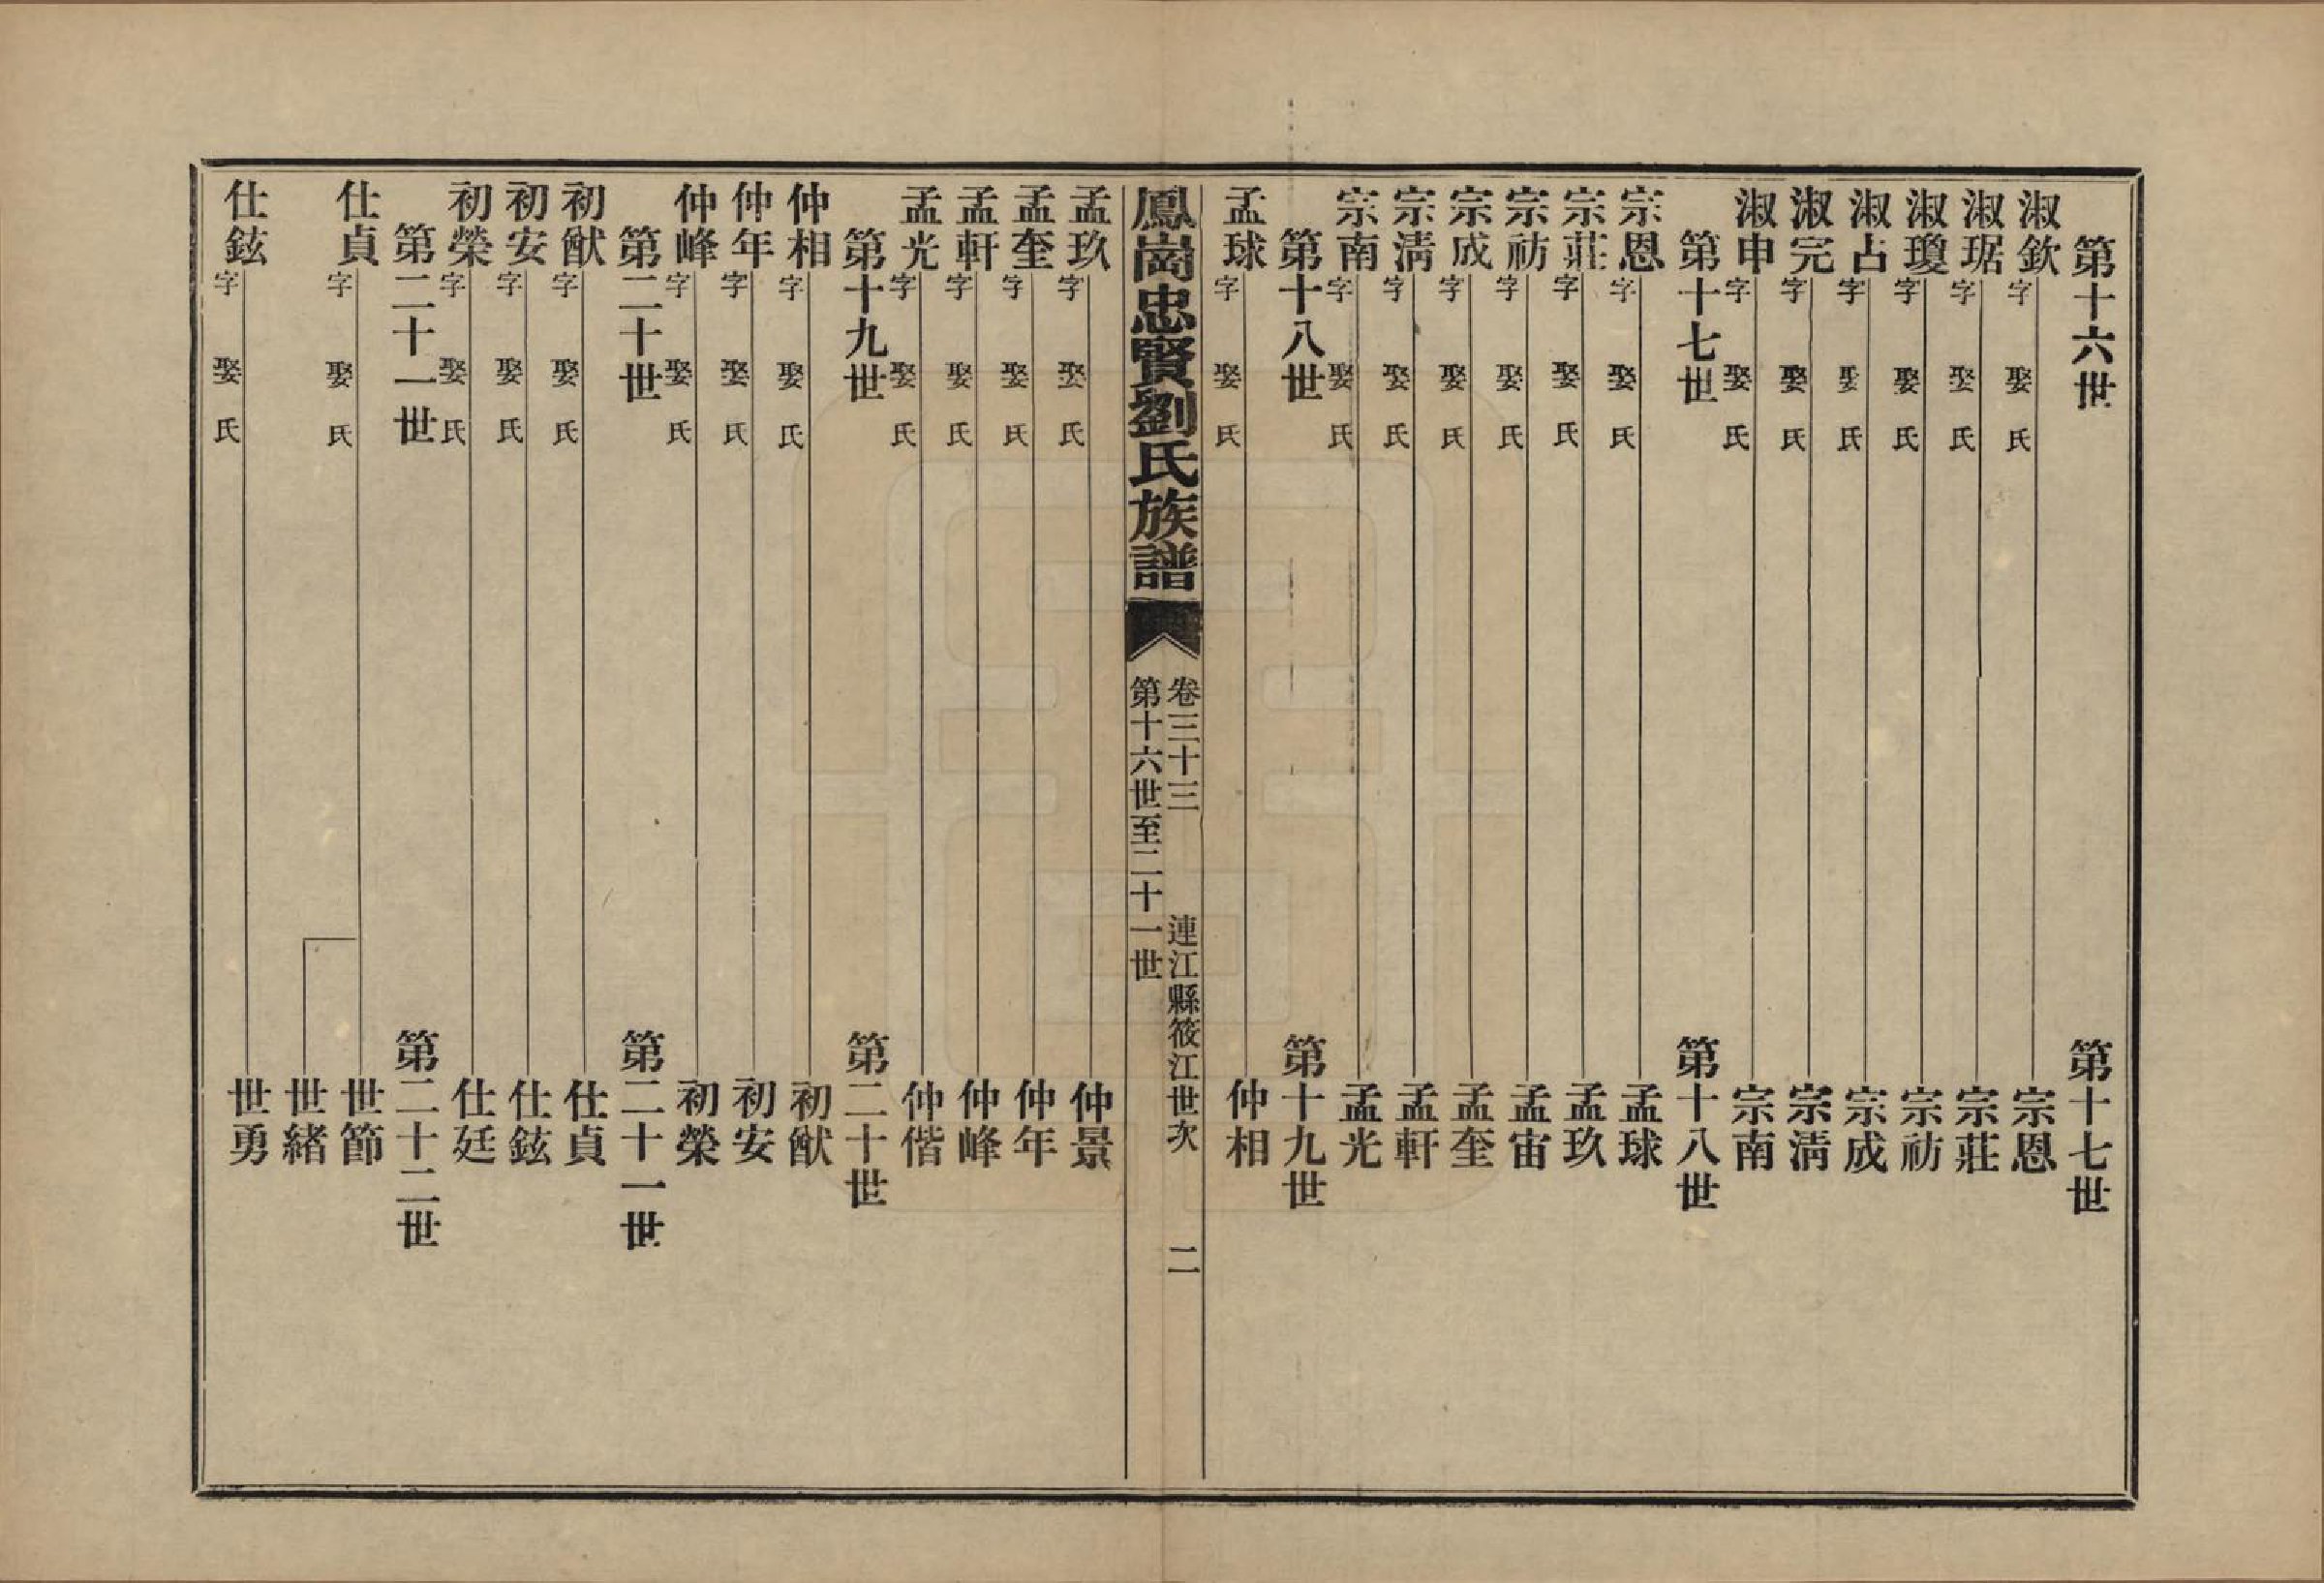 第十六世　第十七世
淑欽　字　娶　氏　宗恩
淑琚　字　娶　氏　宗莊
淑瓊　字　娶　氏　宗祊
淑占　字　娶　氏　宗成
淑完　字　娶　氏　宗淸
淑申　字　娶　氏　宗南
第十七世　第十八世
宗恩　字　娶　氏　孟球
宗莊　字　娶　氏　孟玖
宗祊　字　娶　氏　孟宙
宗成　字　娶　氏　孟奎
宗淸　字　娶　氏　孟軒
宗南　字　娶　氏　孟光
第十八世　第十九世
孟球　字　娶　氏　仲相
鳳崗忠賢劉氏族譜
卷三十三　連江縣筱江世次　二
第十六世至二十一世
孟玖　字　娶　氏　仲景
孟奎　字　娶　氏　仲年
孟軒　字　娶　氏　仲峰
孟光　字　娶　氏　仲偕
第十九世　第二十世
仲相　字　娶　氏　初猷
仲年　字　娶　氏　初安
仲峰　字　娶　氏　初榮
第二十世　第二十一世
初猷　字　娶　氏　仕貞
初安　字　娶　氏　仕鉉
初榮　字　娶　氏　仕廷
第二十一世　第二十二世
仕貞　字　娶　氏　世節
世緒
仕鉉　字　娶　氏　世勇